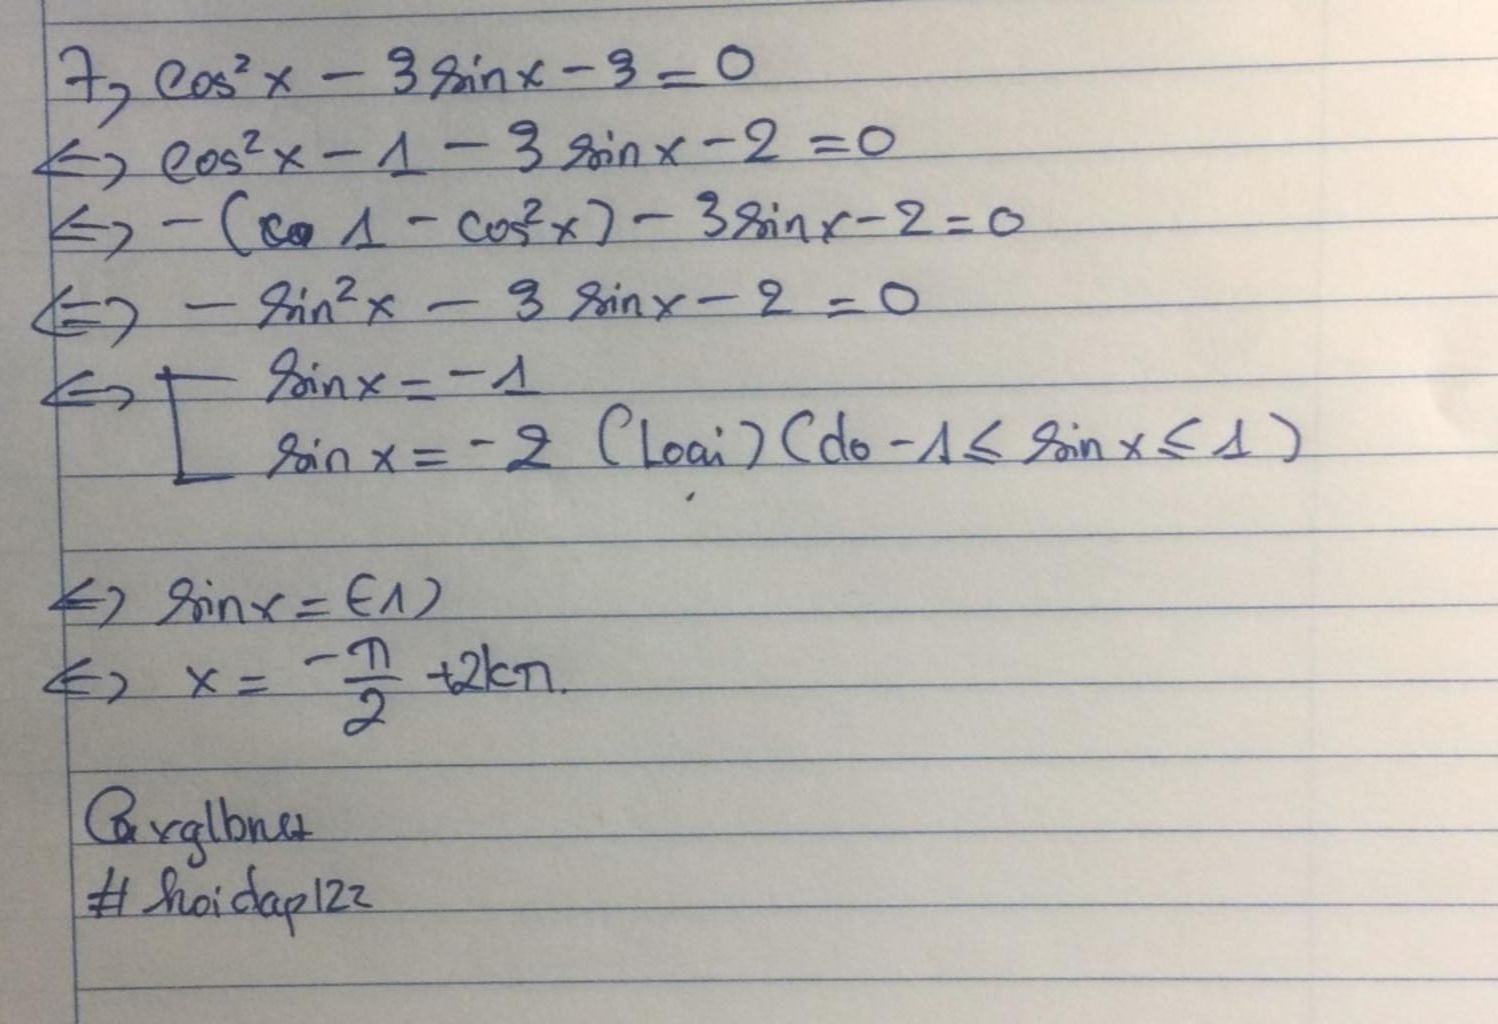 7, cos²x - 3 sinx - 3 = 0
<=> cos²x - 1 - 3 sinx - 2 = 0
<=> -( 1 - cos²x) - 3 sinx - 2 = 0
<=> - sin²x - 3 sinx - 2 = 0
<=> [ sinx = -1
sinx = -2 (Loại) (do -1 ≤ sinx ≤ 1)
<=> sinx = (-1)
<=> x = -π/2 + 2kπ.
# hoidap122